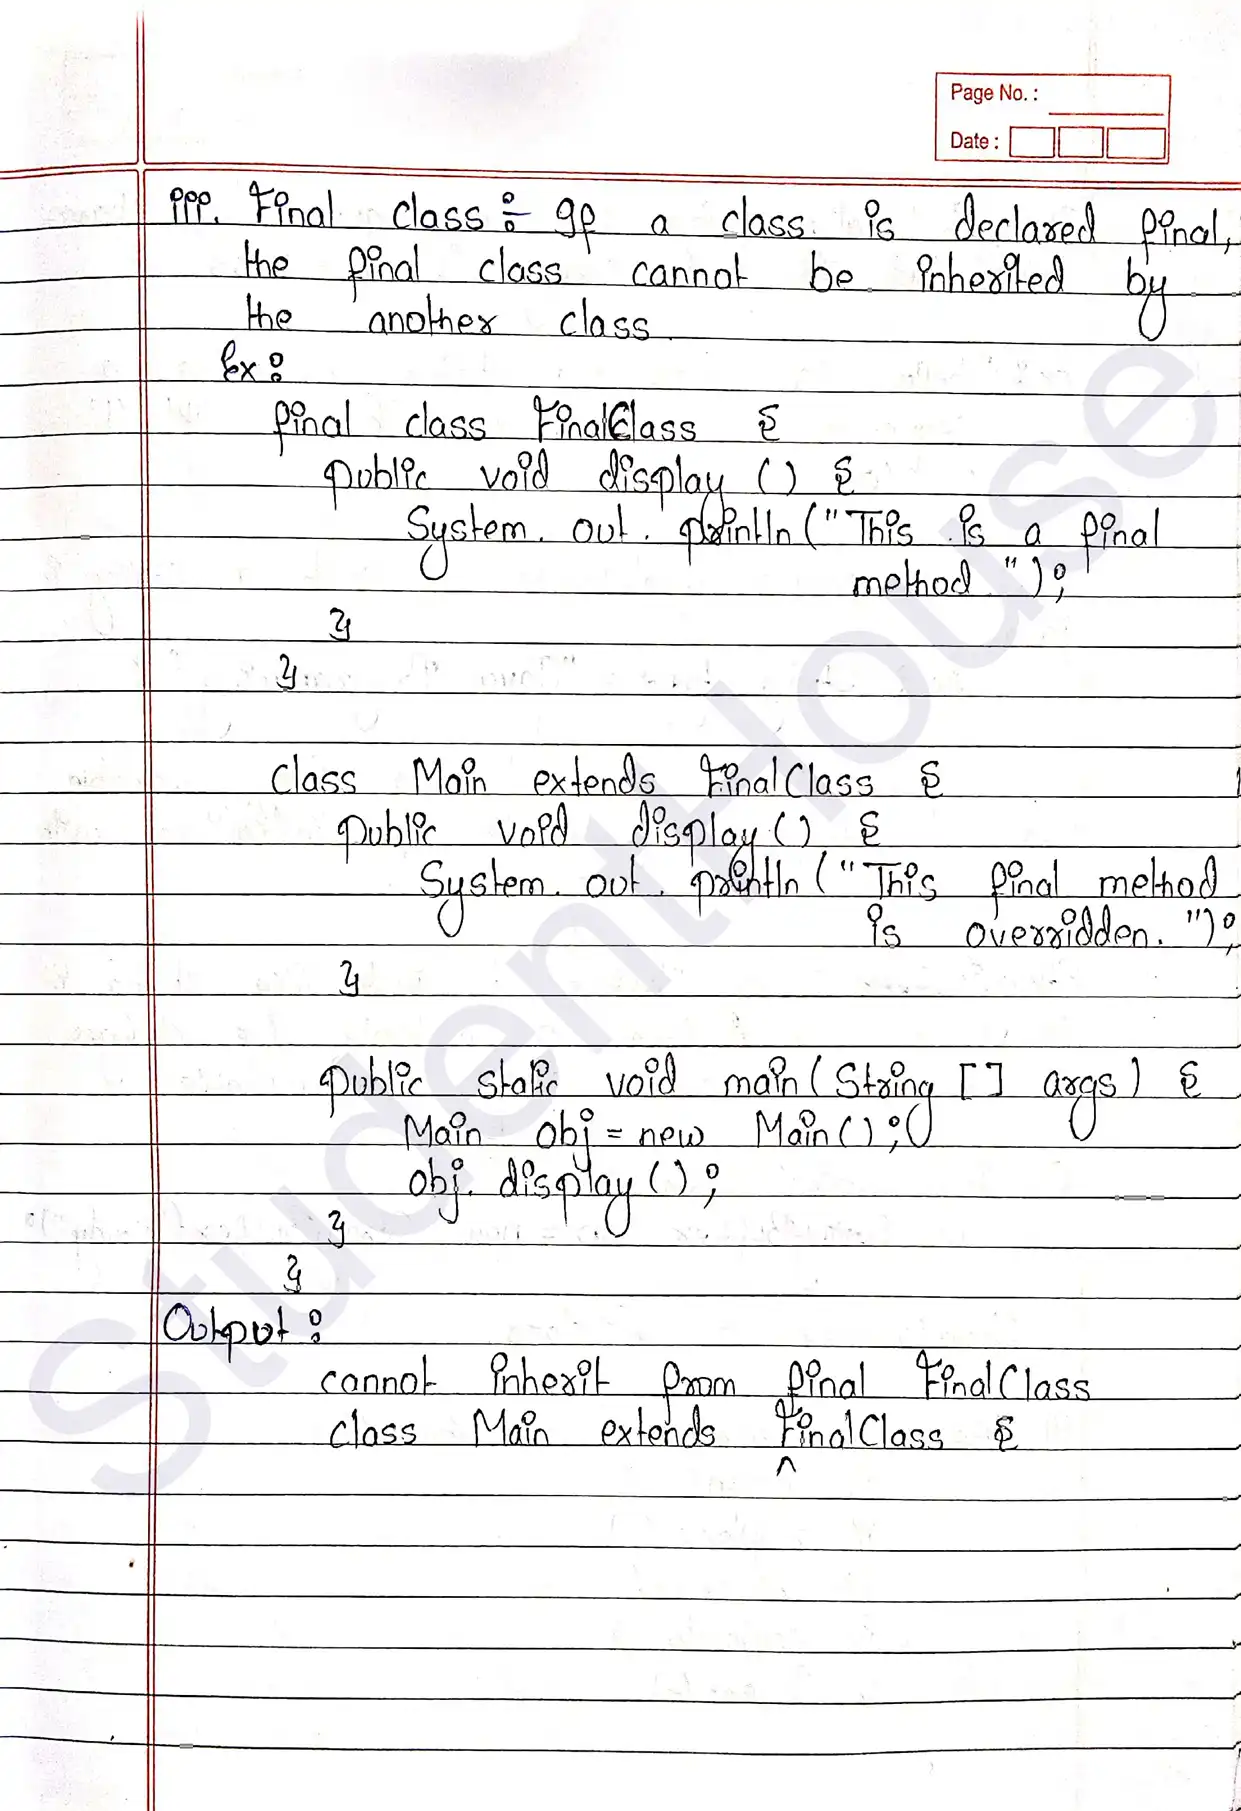 Page No. :
Date :
iii. Final class :- If a class is declared final,
the final class cannot be inherited by
the another class.
Ex :
final class FinalClass {
public void display () {
System. out. println ("This is a final
method ");
}
}
class Main extends FinalClass {
public void display () {
System. out. println ("This final method
is overridden. ");
}
public static void main (String [] args) {
Main obj = new Main () ;
obj. display () ;
}
}
Output :
cannot inherit from final FinalClass
class Main extends FinalClass {
^
StudentHouse